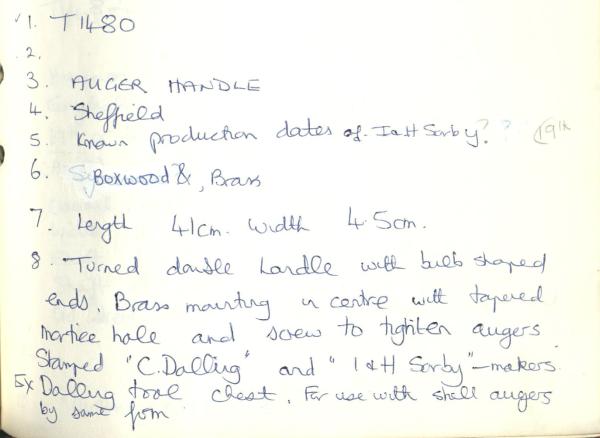 1. T1480
2.
3. AUGER HANDLE
4. Sheffield
5. Known production dates of I&H Sorby? ? (19th
6. Boxwood &, Brass
7. Length 41cm. Width 4.5cm.
8. Turned double handle with bulb shaped
ends. Brass mounting in centre with tapered
mortice hole and screw to tighten augers
Stamped "C. Dalling" and "I & H Sorby" - makers.
Ex Dalling tool chest. For use with shell augers
by same firm